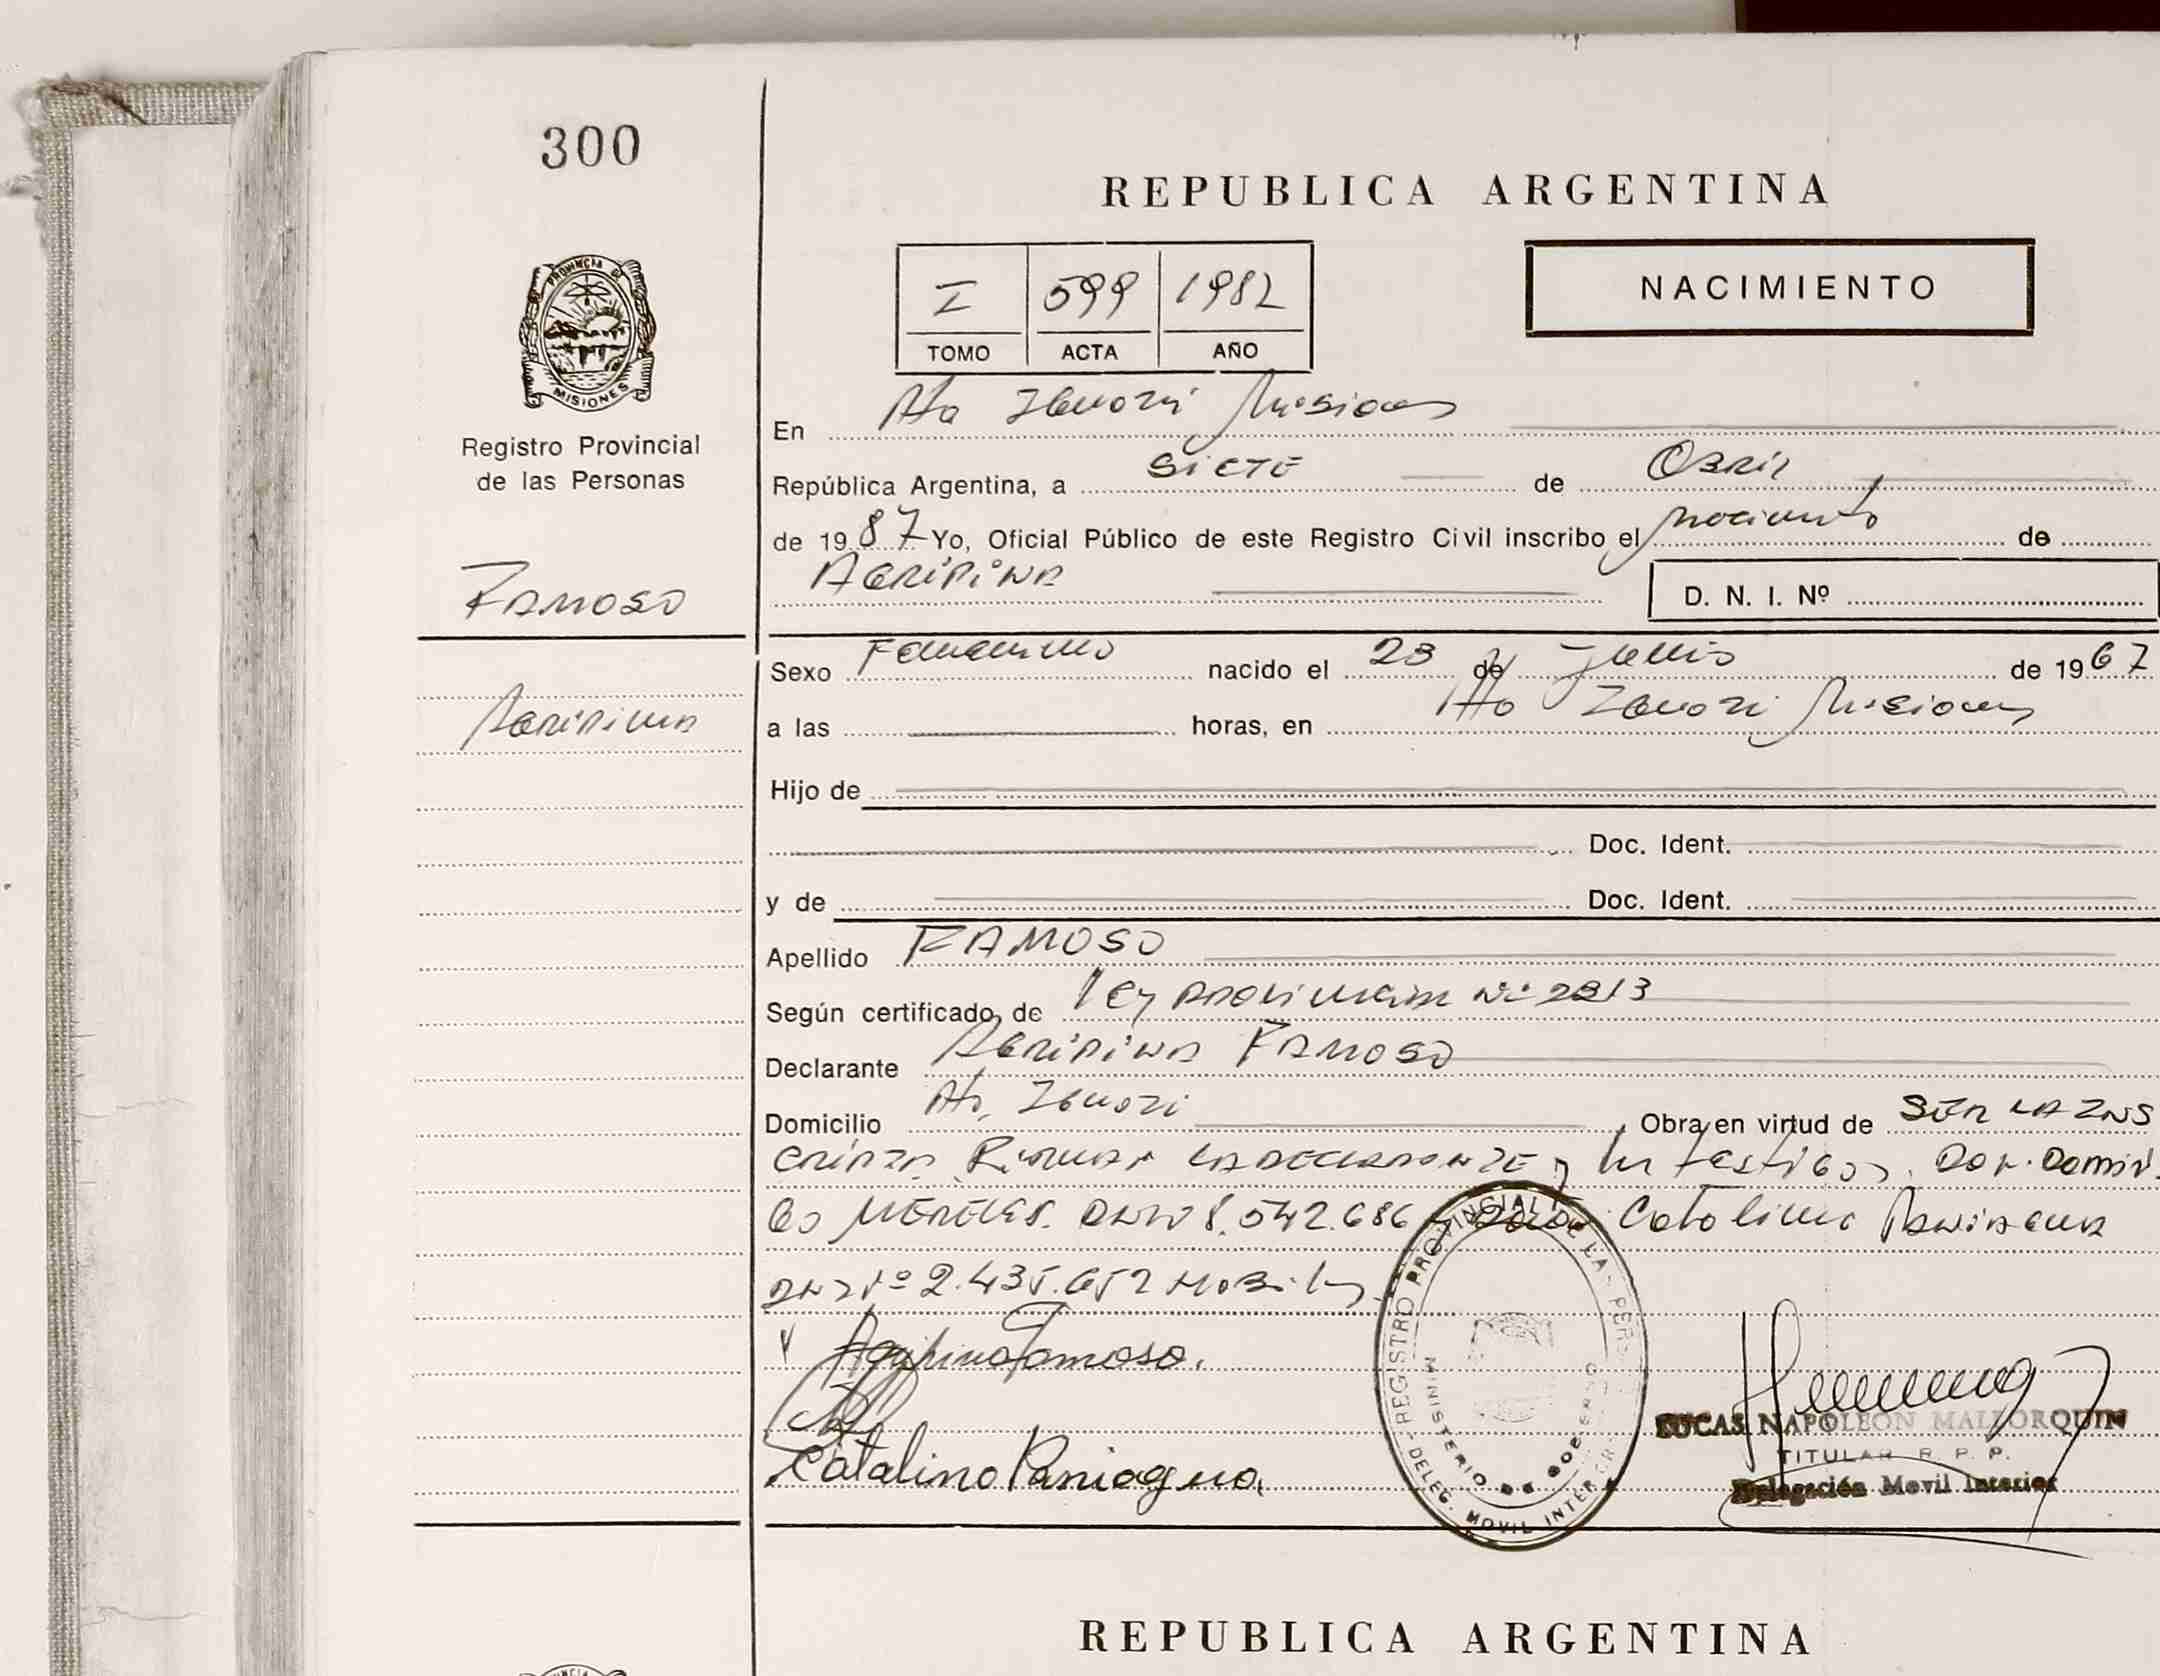 300
REPUBLICA ARGENTINA
PROVINCIA DE
MISIONES
Registro Provincial
de las Personas
NACIMIENTO
I 599 1982
TOMO ACTA AÑO
En Misiones
República Argentina, a siete de Abril
de 1987 Yo, Oficial Público de este Registro Civil inscribo el nacimiento de
Agripina
D. N. I. Nº
Famoso
Agripina
Sexo Femenino nacido el 23 de de 1967
a las horas, en Misiones
Hijo de
Doc. Ident.
y de Doc. Ident.
Apellido FAMOSO
Según certificado de Ley Nº 2213
Declarante Agripina Famoso
Domicilio Obra en virtud de SER LA INS
CRIPTA Firman LA DECLARANTE y los testigos DON Domin
go MERELES. DNI Nº 8.542.686 y Catalino Paniagua
DNI Nº 2.435.652
Agripina Famoso.
Catalino Paniagua.
REGISTRO PROVINCIAL DE LA PERS
MINISTERIO DE GOBIERNO
DELEG. MOVIL INTERIOR
LUCAS NAPOLEON MALLORQUIN
TITULAR R. P. P.
Delegación Movil Interior
REPUBLICA ARGENTINA